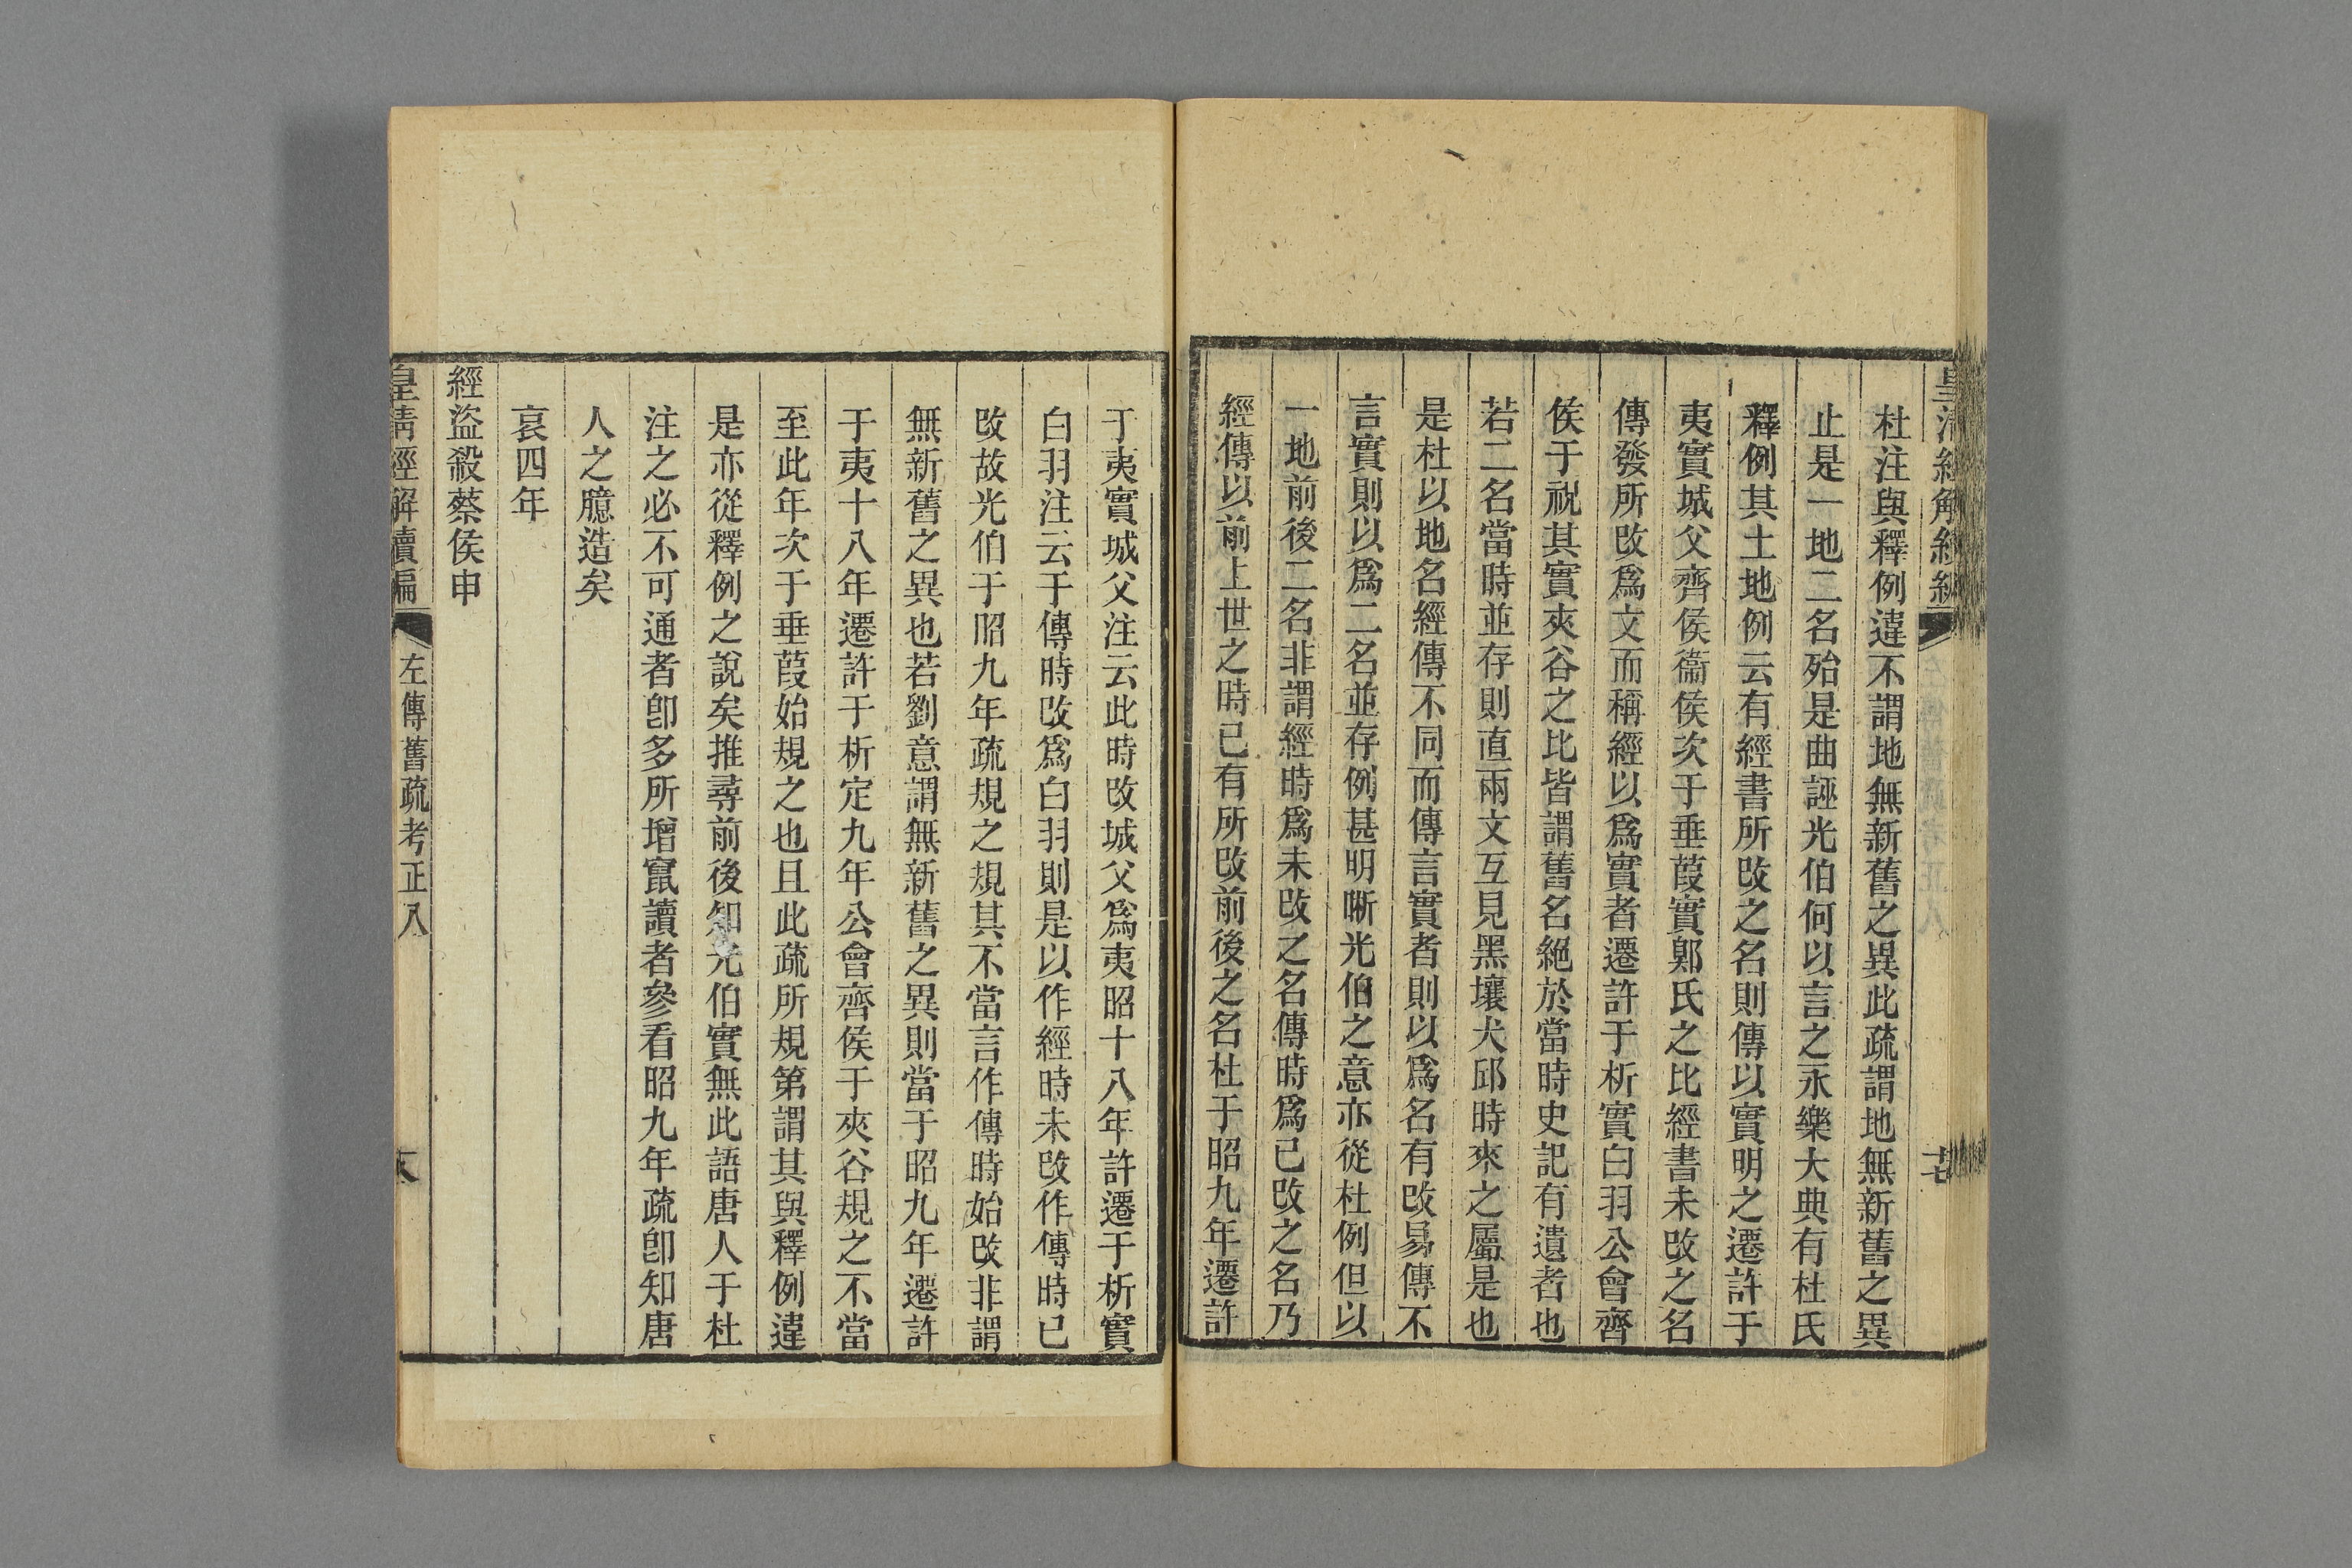 杜注與釋例違不謂地無新舊之異此疏謂地無新舊之異
止是一地二名殆是曲誣光伯何以言之永樂大典有杜氏
釋例其土地例云有經書所改之名則傳以實明之遷許于
夷實城父齊侯衞侯次于垂葭實郹氏之比經書未改之名
傳發所改爲文而稱經以爲實者遷許于析實白羽公會齊
侯于祝其實夾谷之比皆謂舊名絕於當時史記有遺者也
若二名當時並存則直兩文互見黑壤犬邱時來之屬是也
是杜以地名經傳不同而傳言實者則以爲名有改易傳不
言實則以爲二名並存例甚明晰光伯之意亦從杜例但以
一地前後二名非謂經時爲未改之名傳時爲已改之名乃
經傳以前上世之時已有所改前後之名杜于昭九年遷許
于夷實城父注云此時改城父爲夷昭十八年許遷于析實
白羽注云于傳時改爲白羽則是以作經時未改作傳時已
改故光伯于昭九年疏規之規其不當言作傳時始改非謂
無新舊之異也若劉意謂無新舊之異則當于昭九年遷許
于夷十八年遷許于析定九年公會齊侯于夾谷規之不當
至此年次于垂葭始規之也且此疏所規第謂其與釋例違
是亦從釋例之說矣推尋前後知光伯實無此語唐人于杜
注之必不可通者卽多所增竄讀者參看昭九年疏卽知唐
人之臆造矣
哀四年
經盜殺蔡侯申
皇淸經解續編
左傳舊疏考正八